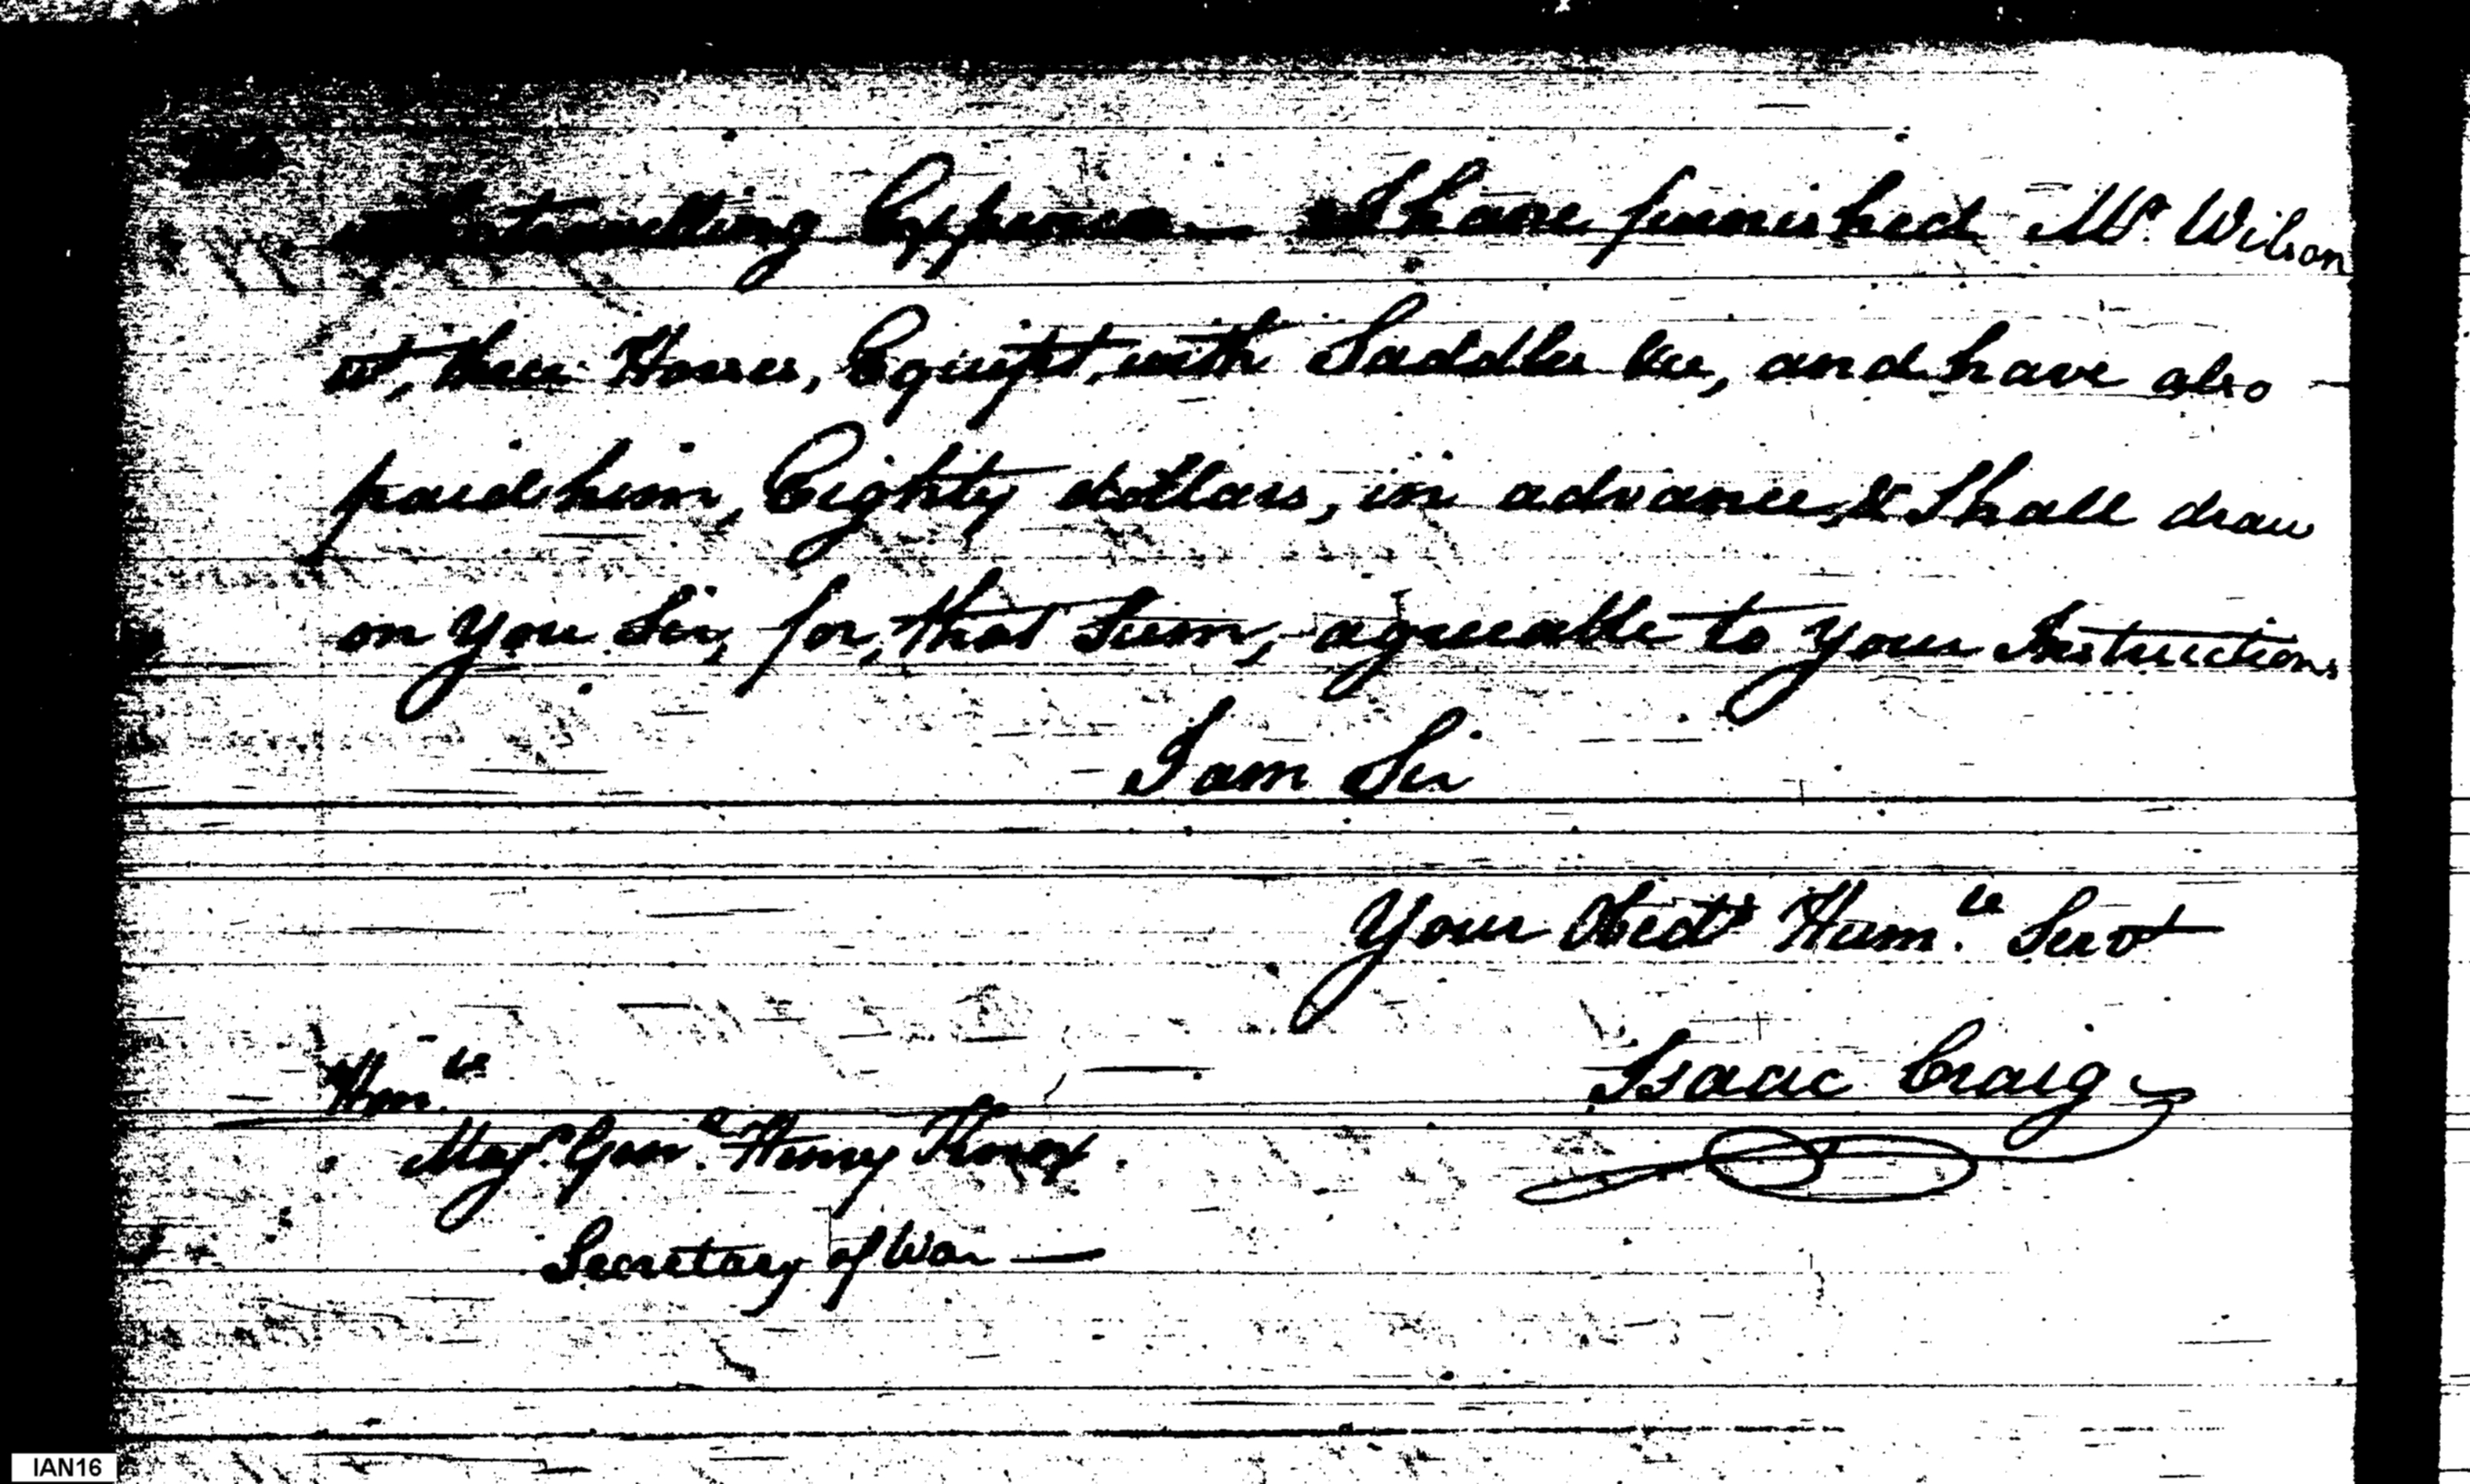 travelling Expences — I have furnished Mr. Wilson
wt, three Horses, Equipt, with Saddles &c, and have also —
paid him, Eighty dollars, in advance, & Shall draw
on you Sir, for, that Sum, agreeable to your Instructions
I am Sir
Your Obedt Humle. Servt
Isaac Craig
Honle.
Majr. Genl. Henry Knox.
Secretary of War —
IAN16